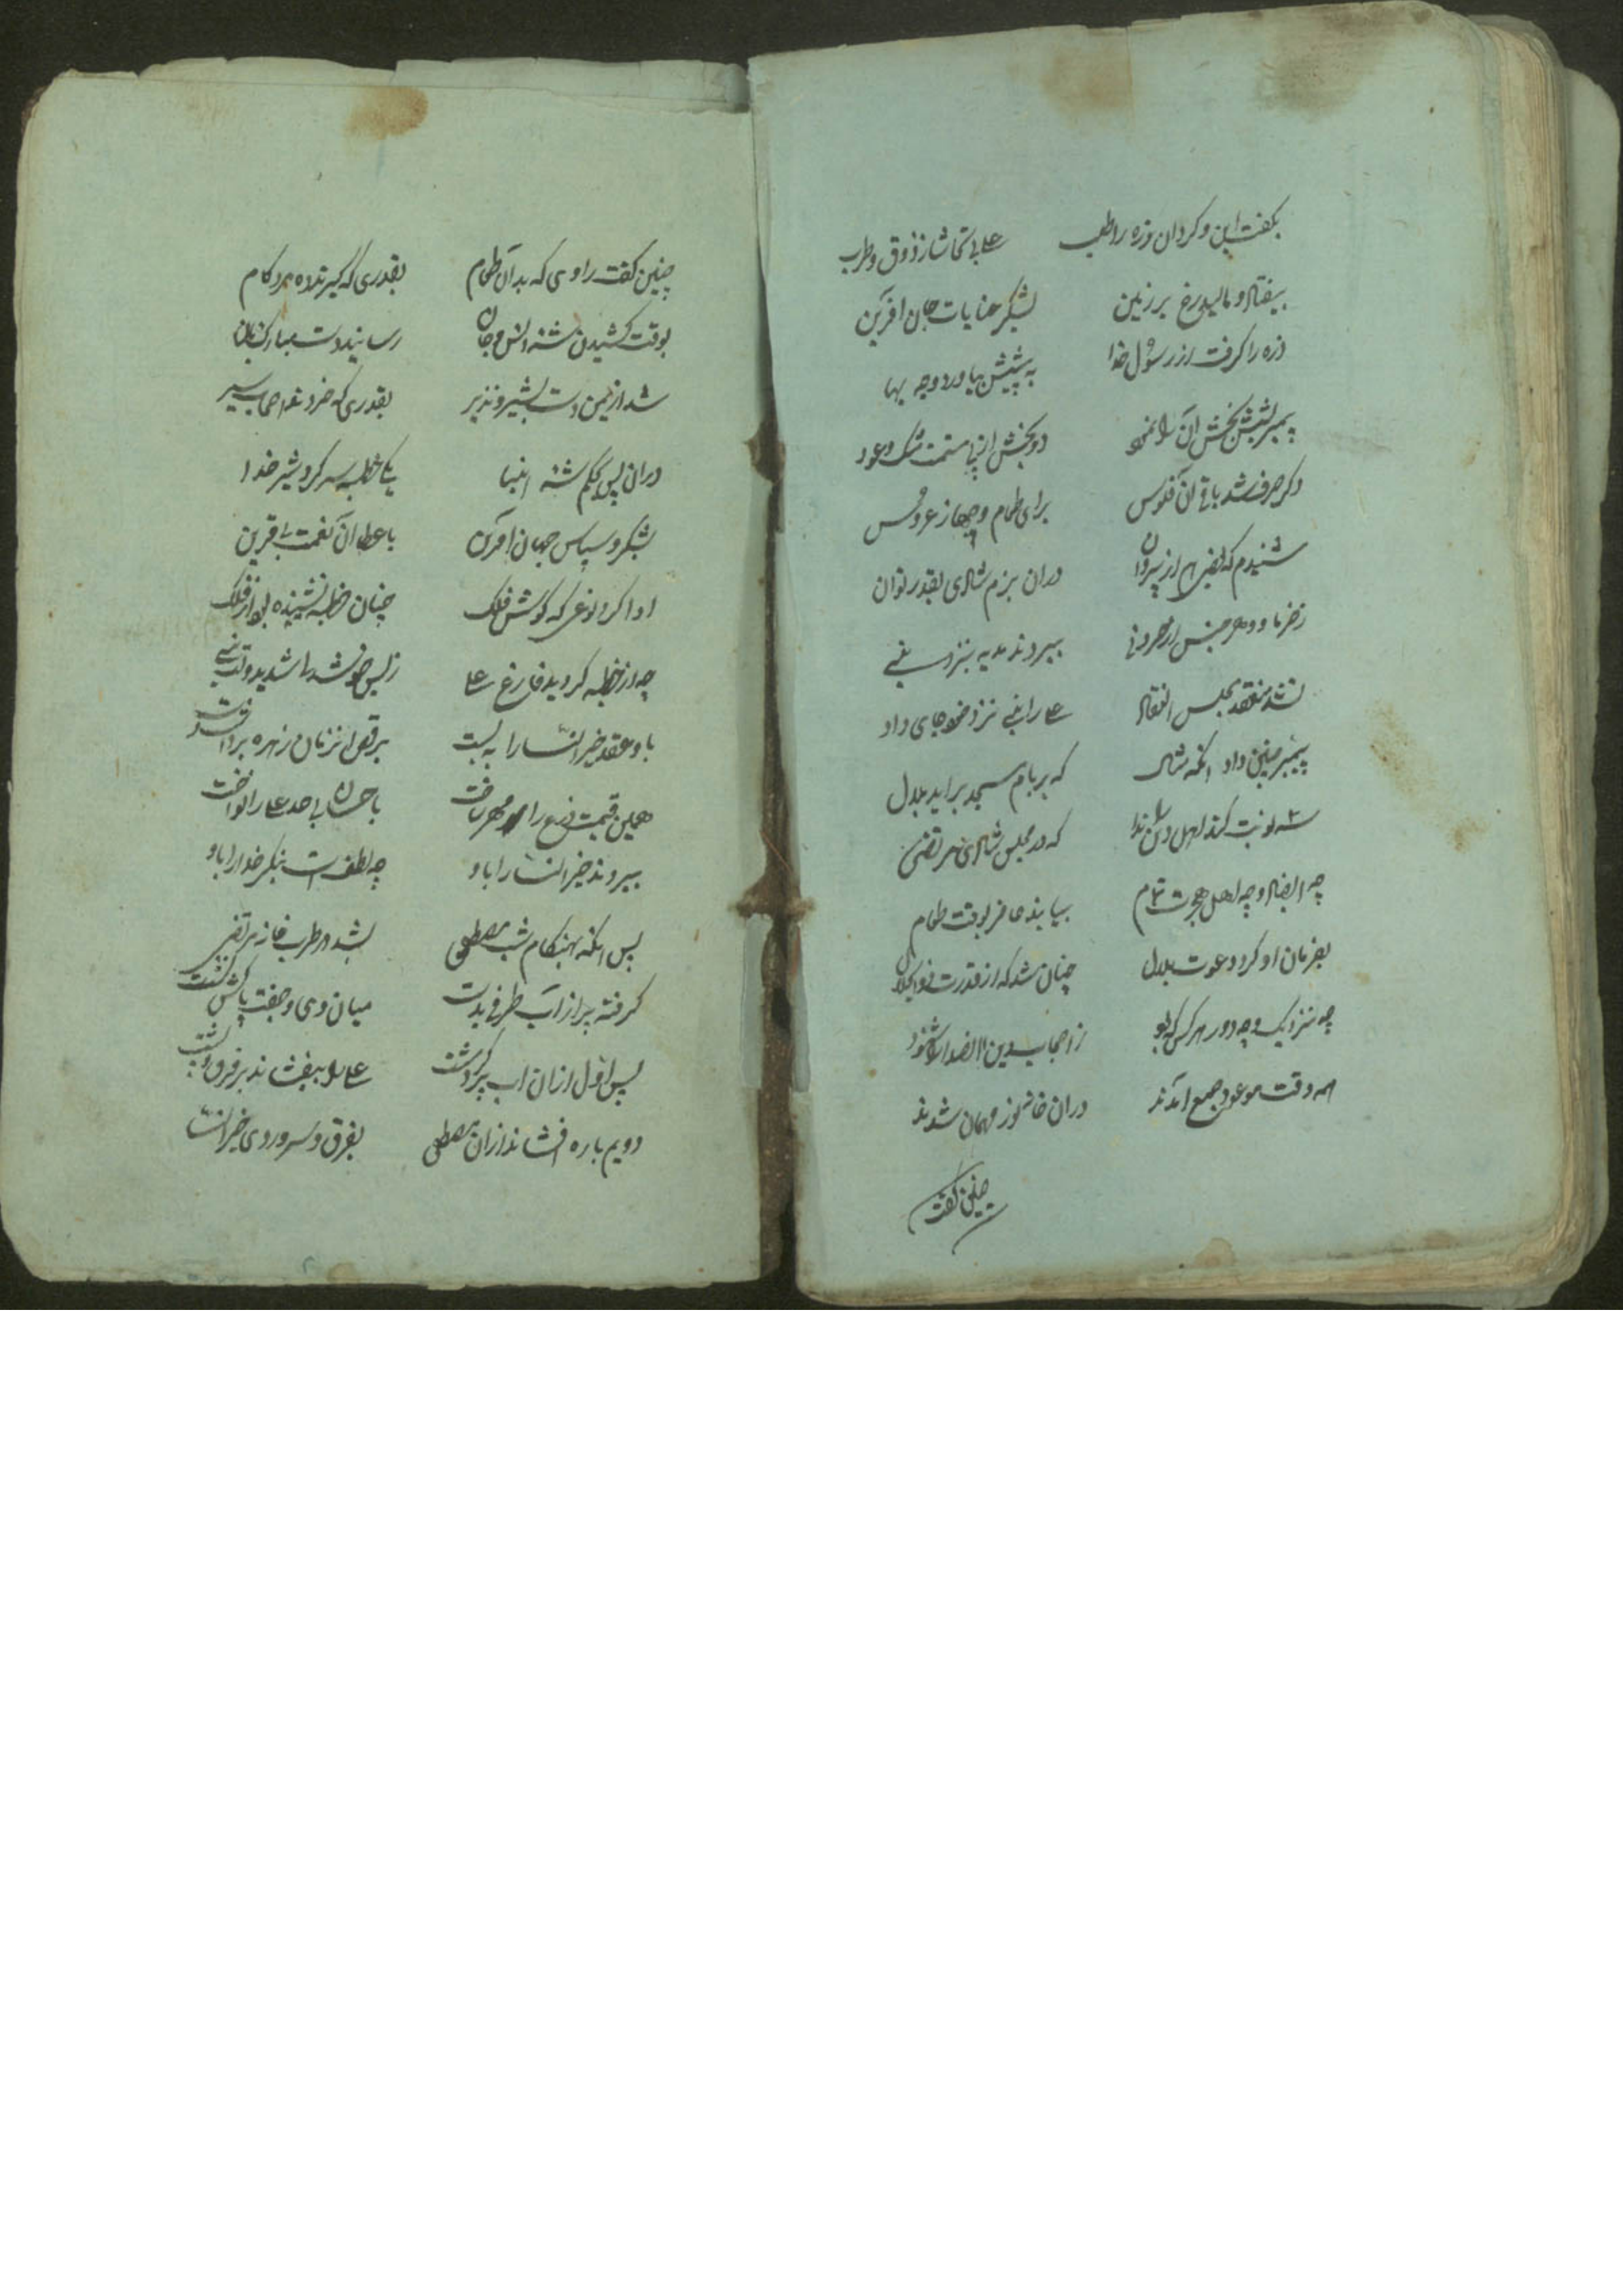 بکفت این و کرد ان زره را طلب علی بی تحاشا ز ذوق و طرب
بیفتاد و مالید رخ بر زمین بشکر عنایات جان افرین
زره را کرفت از رسول خدا به پیشش بیاورد وجه بها
پیمبر بخش آن را نمود دو بخش از پی مشک و عود
دکر صرف شد باقی آن فلوس برای طعام و جهاز عروس
شنیدم که بعضی از پیروان دران بزم شادی بقدر توان
ز خرما و دیکر جنس ببردند هدیه بنزد نبی
بشد منعقد مجلس علی را نبی نزد خود جای داد
پیمبر چنین داد که بر بام مسجد براید بلال
سه نوبت کند اهل دین را ندا که در مجلس شادی مرتضی
چه انصار و چه اهل هجرت تمام بیایند حاضر بوقت طعام
بفرمان او کرد دعوت بلال چنان شد که از قدرت ذوالجلال
چه نزدیک و چه دور هر کس که بود ز اصحاب دین
همه وقت موعود جمع آمدند دران خانه نور مهمان شدند
چنین کفت
چنین کفت راوی که بد آن طعام بقدری که کیرند ده مرد کام
بوقت کشیدن شه انس و جان رسانید دست مبارک بان
شد از یمن دست بشیر و نذیر بقدری که خوردند اصحاب سیر
دران پس بحکم شه انبیا یکی خطبه سر کرد شیر خدا
بشکر و سپاس جهان آفرین باعطای آن نعمت بی قرین
ادا کرد نوعی که کوش فلک چنان خطبه نشنیده بود از ملک
چه از خطبه کردید فارغ علی ز بس خوش شد
باو عقد خیرالنسا را به بست برقع از نزمان زهره
همین قیمت درع را مهر ساخت باحسان بی حد علی را نواخت
ببردند خیرالنسا را باو چه لطف است بنکر خدا را باو
پس انکه بهنکام شب مصطفی بشد در طرب خانه مرتضی
کرفته پر از آب ظرفی بدست میان وی و جفت پاکش نشست
پس اول ازان اب علی را بیفشاند بر فرق و پشت
دویم باره افشاند ازان مصطفی بفرق و سر و روی خیرالنسا